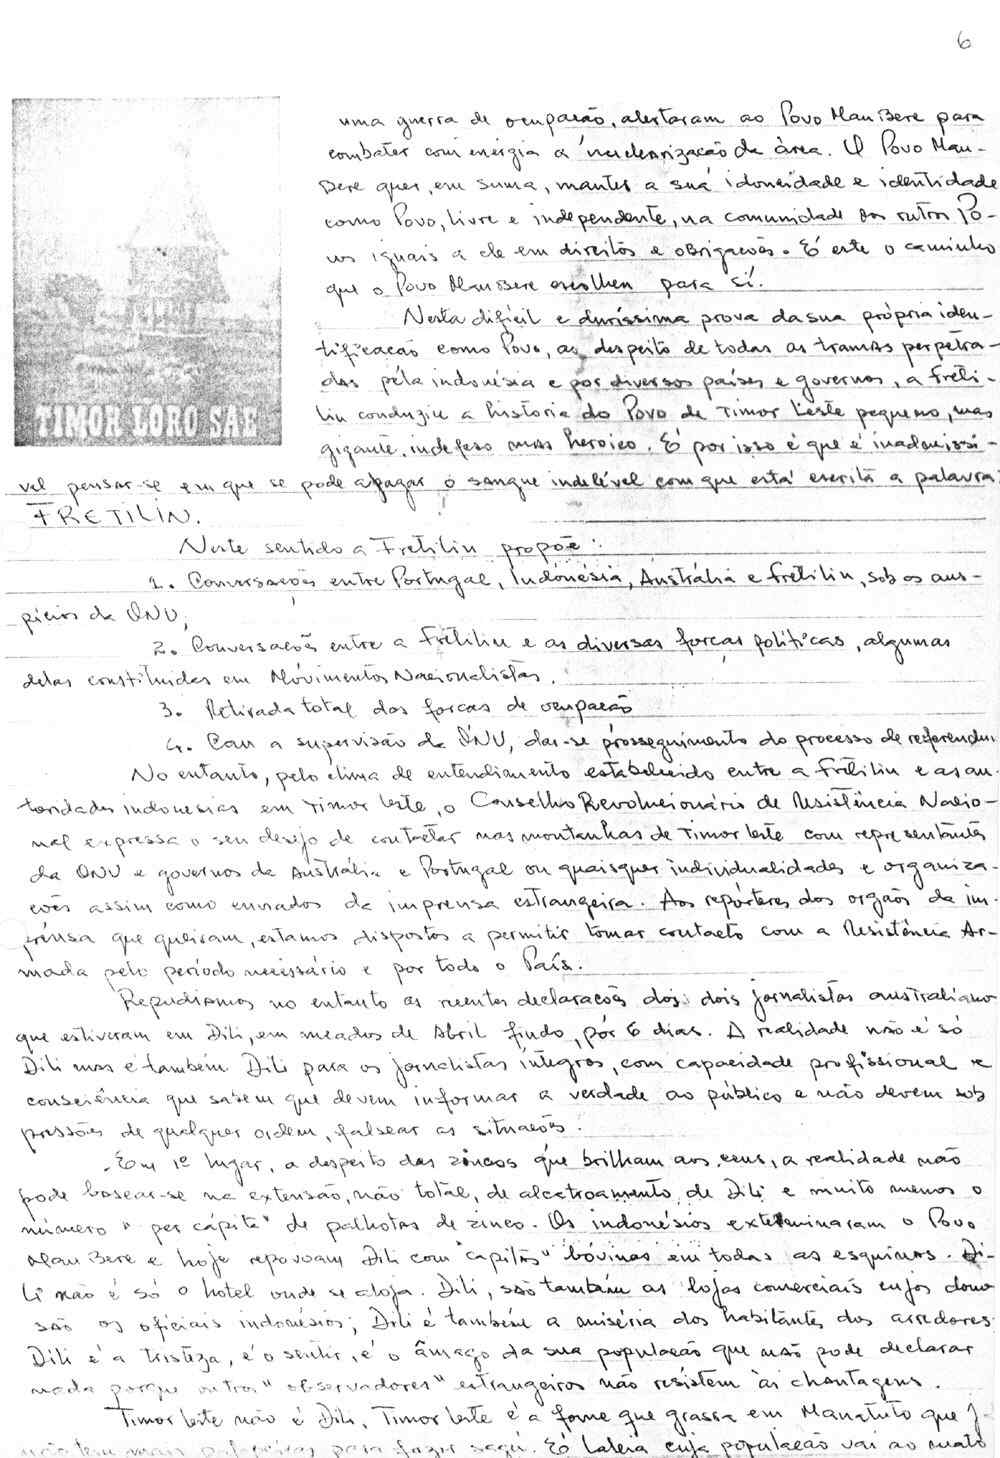 6
TIMOR LORO SAE
uma guerra de ocupação, alertaram ao Povo MauBere para
combater com energia a nuclearização da área. O Povo Mau-
Bere quer, em suma, manter a sua idoneidade e identidade
como Povo, livre e independente, na comunidade dos outros Po-
vos iguais a ele em direitos e obrigações. É este o caminho
que o Povo MauBere escolheu para sí.
Nesta difícil e duríssima prova da sua própria iden-
tificação como Povo, ao despeito de todas as tramas perpetra-
das pela indonésia e por diversos países e governos, a Freti-
lin conduziu a história do Povo de Timor Leste pequeno, mas
gigante, indefeso mas heroico. É por isso é que é inadmissí-
vel pensar-se em que se pode apagar o sangue indelével com que está escrita a palavra:
FRETILIN.
Neste sentido a Fretilin propõe:
1. Conversações entre Portugal, Indonésia, Austrália e Fretilin, sob os aus-
pícios da ONU;
2. Conversações entre a Fretilin e as diversas forças políticas, algumas
delas constituidas em Movimentos Nacionalistas.
3. Retirada total das forças de ocupação
4. Com a supervisão da ONU, dar-se prosseguimento do processo de referendum
No entanto, pelo clima de entendimento estabelecido entre a Fretilin e as au-
toridades indonésias em Timor Leste, o Conselho Revolucionário de Resistência Nacio-
nal expressa o seu desejo de contactar nas montanhas de Timor Leste com representantes
da ONU e governos da Austrália e Portugal ou quaisquer individualidades e organiza-
ções assim como enviados da imprensa estrangeira. Aos repórteres dos orgãos da im-
prensa que queiram, estamos dispostos a permitir tomar contacto com a Resistência Ar-
mada pelo período necessário e por todo o País.
Repudiamos no entanto as recentes declarações dos dois jornalistas australianos
que estiveram em Dili, em meados de Abril findo, por 6 dias. A realidade não é só
Dili mas é também Dili para os jornalistas íntegros, com capacidade profissional e
consciência que sabem que devem informar a verdade ao público e não devem sob
pressões de qualquer ordem, falsear as situações.
Em 1º lugar, a despeito dos zincos que brilham aos ceus, a realidade não
pode basear-se na extensão, não total, de alcatroamento de Dili e muito menos o
número "per cápita" de palhotas de zinco. Os indonésios exterminaram o Povo
MauBere e hoje repovoam Dili com "capitas" bovinas em todas as esquinas. Di-
li não é só o hotel onde se aloja. Dili, são também as lojas comerciais cujos donos
são os oficiais indonésios; Dili é também a miséria dos habitantes dos arredores
Dili é a tristeza, é o sentir, é o âmago da sua população que não pode declarar
nada porque outros "observadores" estrangeiros não resistem às chantagens.
Timor Leste não é Dili, Timor Leste é a fome que grassa em Manatuto que já
não tem mais palmeiras para fazer sagú. É Laleia cuja população vai ao mato